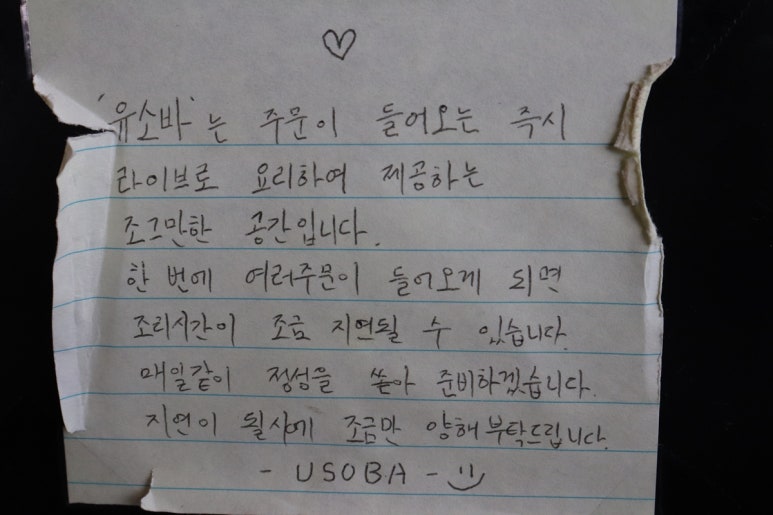 ♡
'유소바'는 주문이 들어오는 즉시
라이브로 요리하여 제공하는
조그만한 공간입니다.
한 번에 여러주문이 들어오게 되면
조리시간이 조금 지연될 수 있습니다.
매일같이 정성을 쏟아 준비하겠습니다.
지연이 될시에 조금만 양해부탁드립니다.
- USOBA - :)